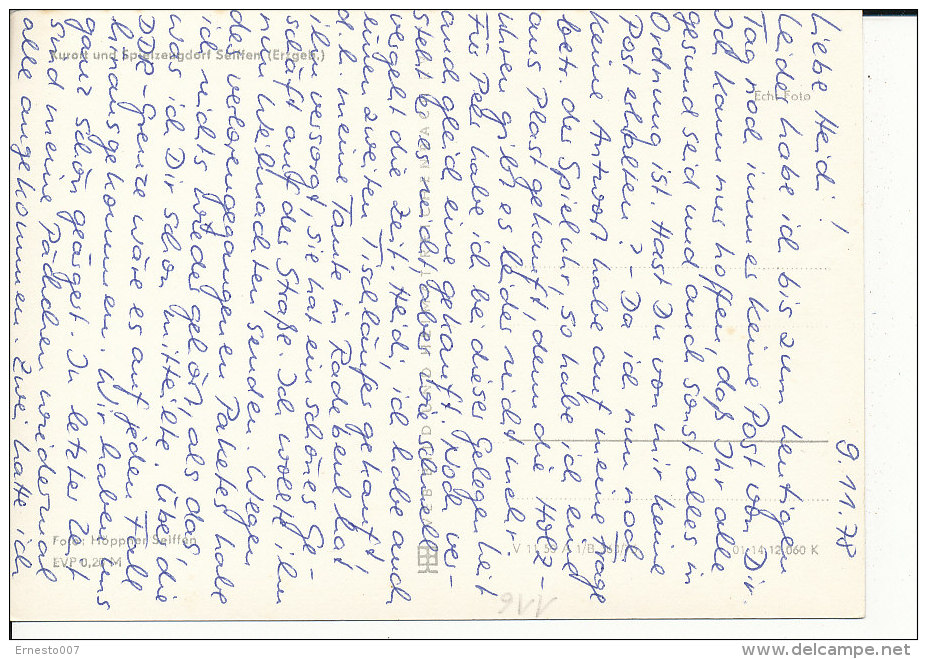 9.11.78
Liebe Heidi!
Leider habe ich bis zum heutigen
Tag noch immer keine Post von Dir.
Ich kann nur hoffen, daß Ihr alle
gesund seid und auch sonst alles in
Ordnung ist. Hast Du von mir keine
Post erhalten? – Da ich nun noch
keine Antwort habe auf meine Frage
betr. der Spieluhr, so habe ich eine
aus Plast gekauft, denn die Holz-
uhren gibt es leider nicht mehr.
Für Peps habe ich bei dieser Gelegenheit
auch gleich eine gekauft. Noch ver-
steht er es nicht, aber wie schnell
vergeht die Zeit. Heidi, ich habe auch
einen zweiten Tischläufer gekauft,
d.h. meine Tante in Radebeul hat
ihn versorgt, sie hat ein schönes Ge-
schäft auf der Straße. Ich wollte ihn
nun Weihnachten senden. Wegen
der verlorengegangenen Paketes habe
ich nichts wieder gehört, als das
was ich Dir schon mitteilte. Über die
DDR-Grenze wäre es auf jeden Fall
hinausgekommen. Wir haben uns
ganz schön geärgert. In letzter Zeit
sind meine Päckchen wiederum
alle angekommen. Zwei hatte ich
Kurort und Spielzeugdorf Seiffen (Erzgeb.)
Echt Foto
Foto: Höppner, Seiffen
EVP 0,20 M
01 14 12 060 K
116
Ernesto007
www.delcampe.net